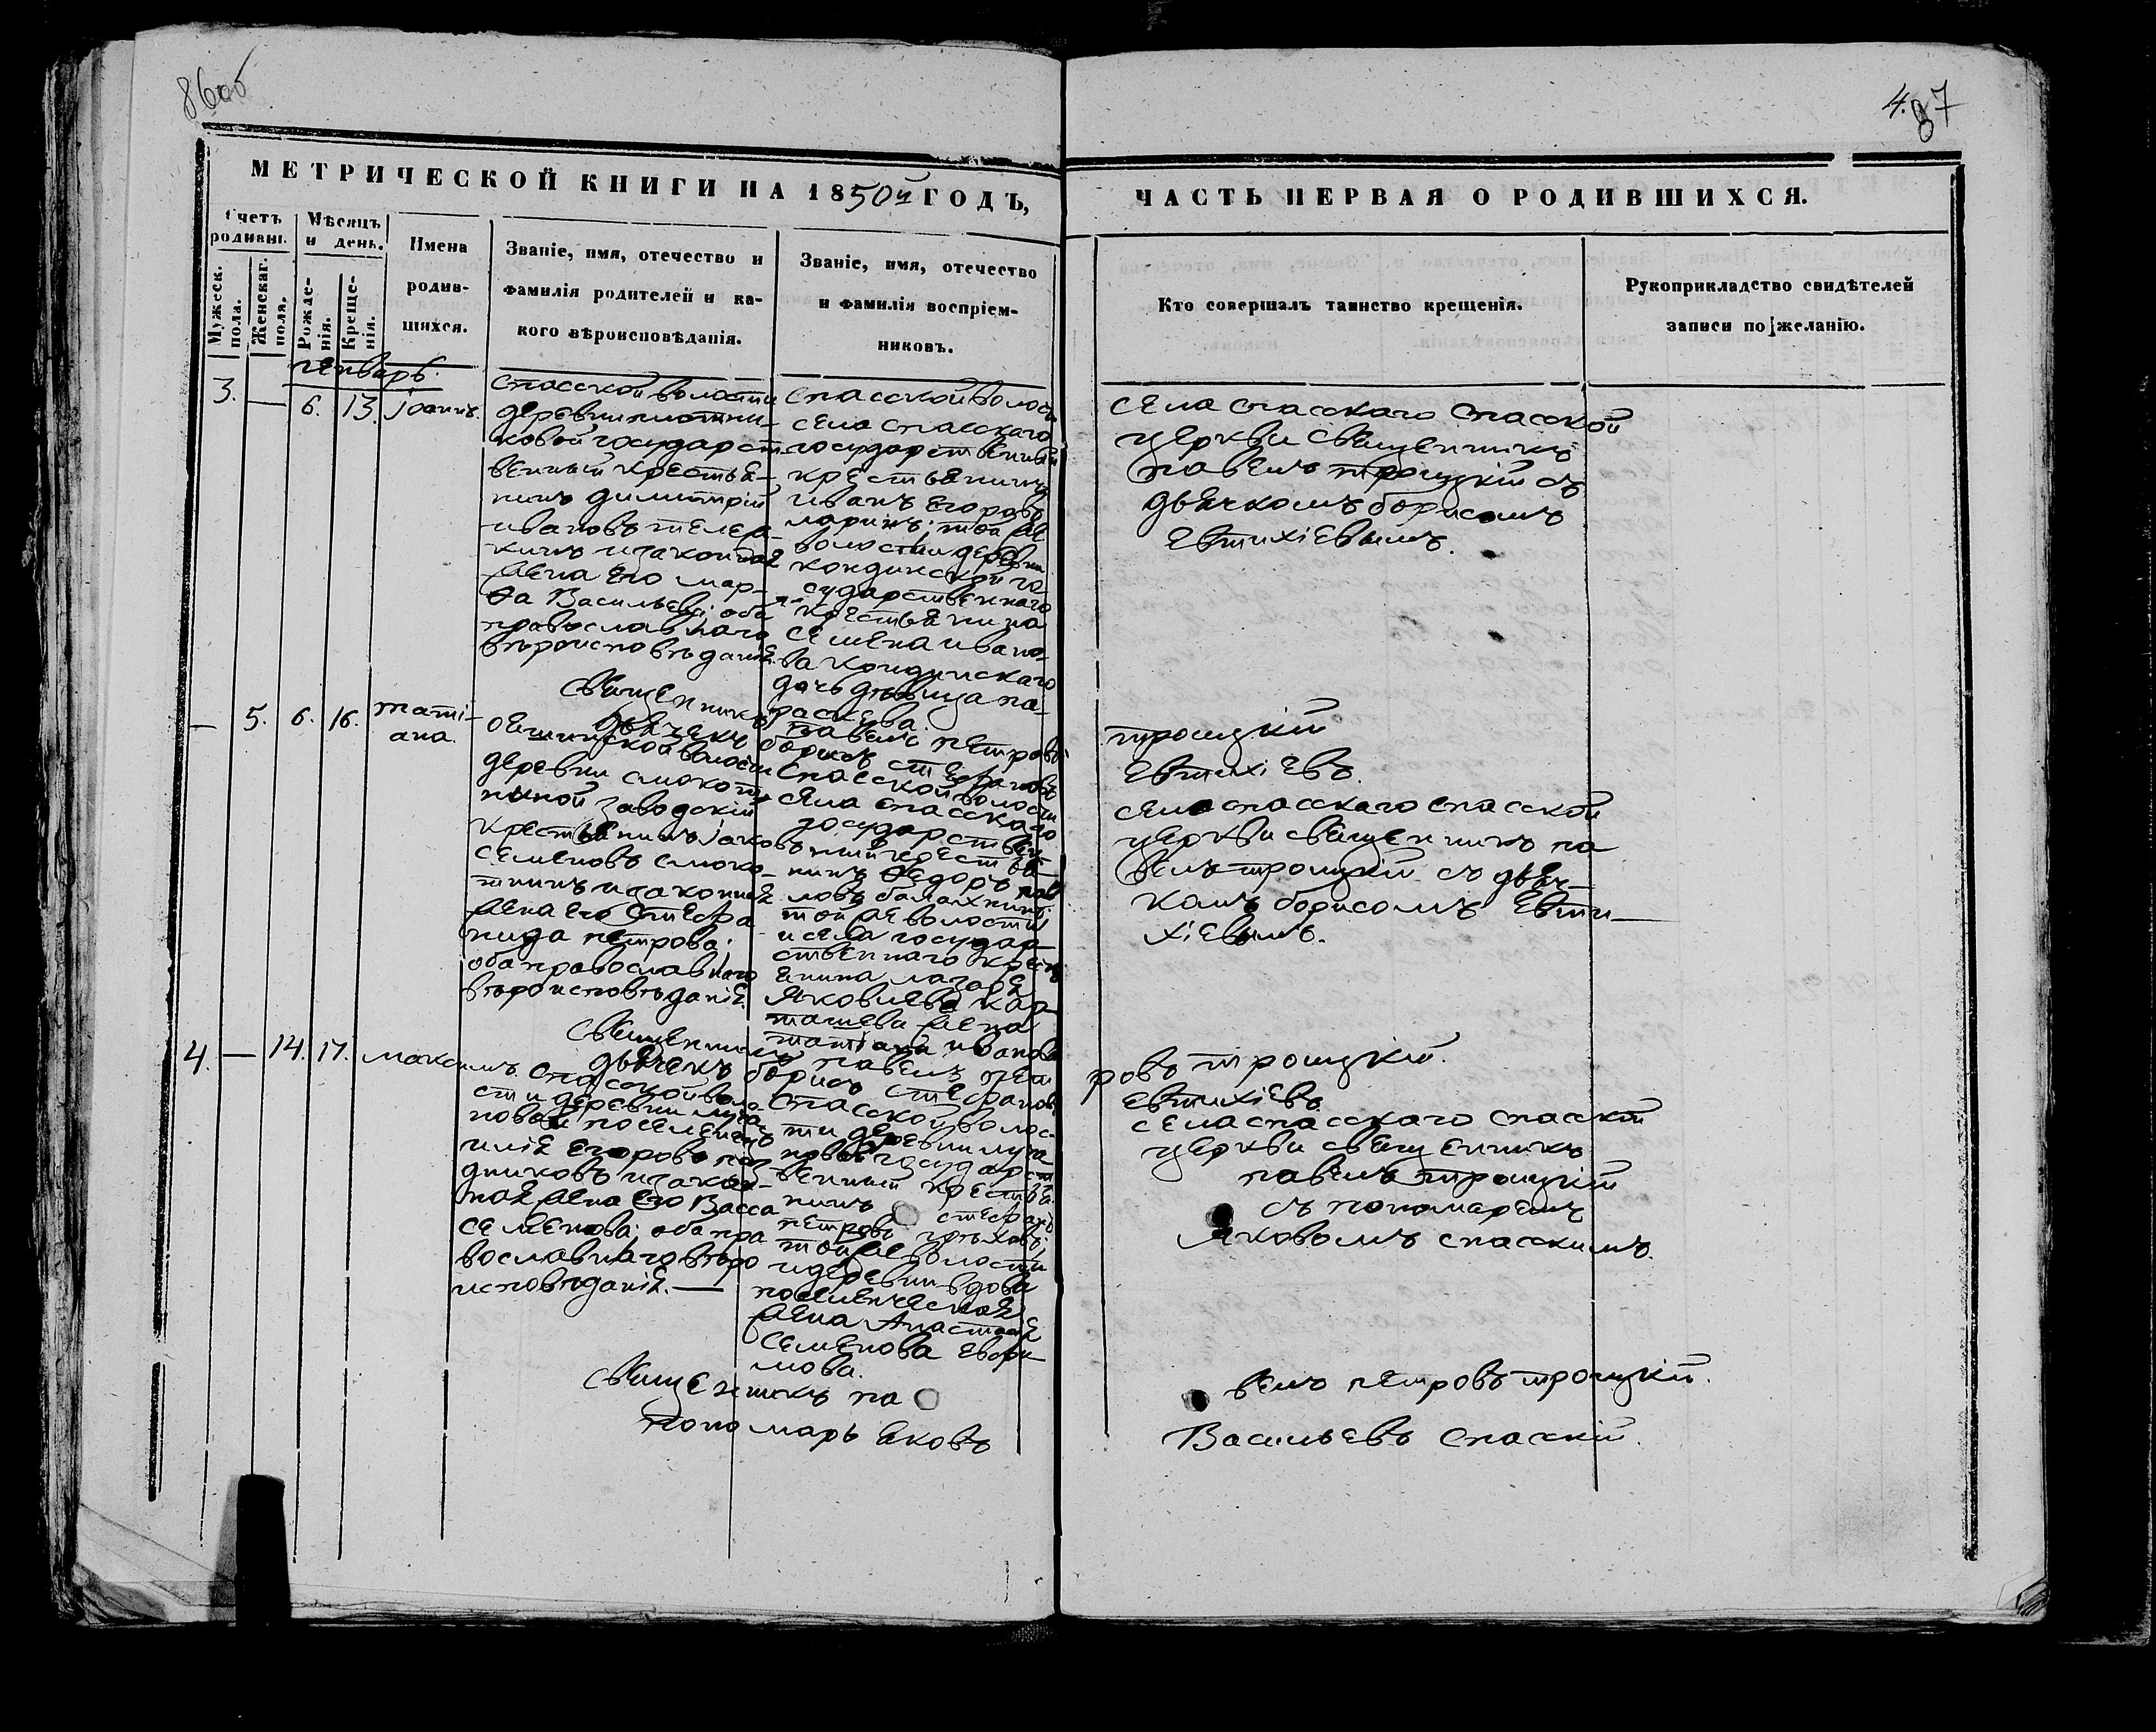 86об
4.
87
МЕТРИЧЕСКОЙ КНИГИ НА 1850й ГОДЪ,
ЧАСТЬ ПЕРВАЯ О РОДИВШИХСЯ.
Счетъ родивш.
Мужеск. пола.
Женскаг. пола.
Мѣсяцъ и день.
Рожде-нія.
Креще-нія.
Имена
родив-
шихся.
Званіе, имя, отечество и
фамилія родителей и ка-
кого вѣроисповѣданія.
Званіе, имя, отечество
и фамилія воспріем-
никовъ.
Кто совершалъ таинство крещенія.
Рукоприкладство свидѣтелей
записи по желанію.
генварь.
3. — 6. 13. Іоаннъ.
спасской волости
деревни плотни-
ковой государст-
венный крестья-
нинъ димитрій
ивановъ телея-
кинъ и законная
жена его мар-
ѳа Васильева; оба
православнаго
вѣроисповѣданія.
спасской волости
села спасскаго
государственный
крестьянинъ
иванъ Егоровъ
ларинъ; той же
волости деревни
кондинской го-
сударственнаго
крестьянина
семена ивано-
ва кондинскаго
дочь дѣвица па-
раскева.
села спасскаго спасской
церкви священникъ
павелъ троицкій съ
дьячкомъ борисомъ
Евтихіевымъ.
священникъ павелъ петровъ троицкій
дьячекъ борисъ стефановъ Евтихіевъ.
— 5. 6. 16. тати-
ана.
деревни смокоти-
ниной заводскій
крестьянинъ іаковъ
семеновъ смоко-
тнинъ и законная
жена его Стефа
нида петрова;
оба православнаго
вѣроисповѣданія.
спасской волости
села спасскаго
государствен-
ный крестья-
нинъ ѳедоръ пав
ловъ балахнинъ;
той же волости
и села государ-
ственнаго крестья
янина лазаря
Яковлева кар-
ташева жена
татіана иванова
села спасскаго спасской
церкви священникъ па
велъ троицкій съ дьяч-
комъ борисомъ Евти-
хіевымъ.
священникъ павелъ пет ровъ троицкій.
дьячекъ борисъ стефановъ Евтихіевъ.
4. — 14. 17. максимъ.
спасской воло-
сти деревни луга-
новой поселенецъ
илія Егоровъ
дниковъ и закон-
ная жена его Васса
семенова; оба пра
вославнаго вѣро
исповѣданія. —
спасской волос-
ти деревни луга
новой государст
венный крестья-
нинъ стефанъ
петровъ
той же волости
и деревни вдова
поселенческая
жена Анастасія
семенова Ефи-
мова.
села спасскаго спасской
церкви священникъ
павелъ троицкій
съ пономаремъ
Яковомъ спасскимъ.
священникъ па велъ петровъ троицкій.
пономарь Яковъ Васильевъ Спасскій.